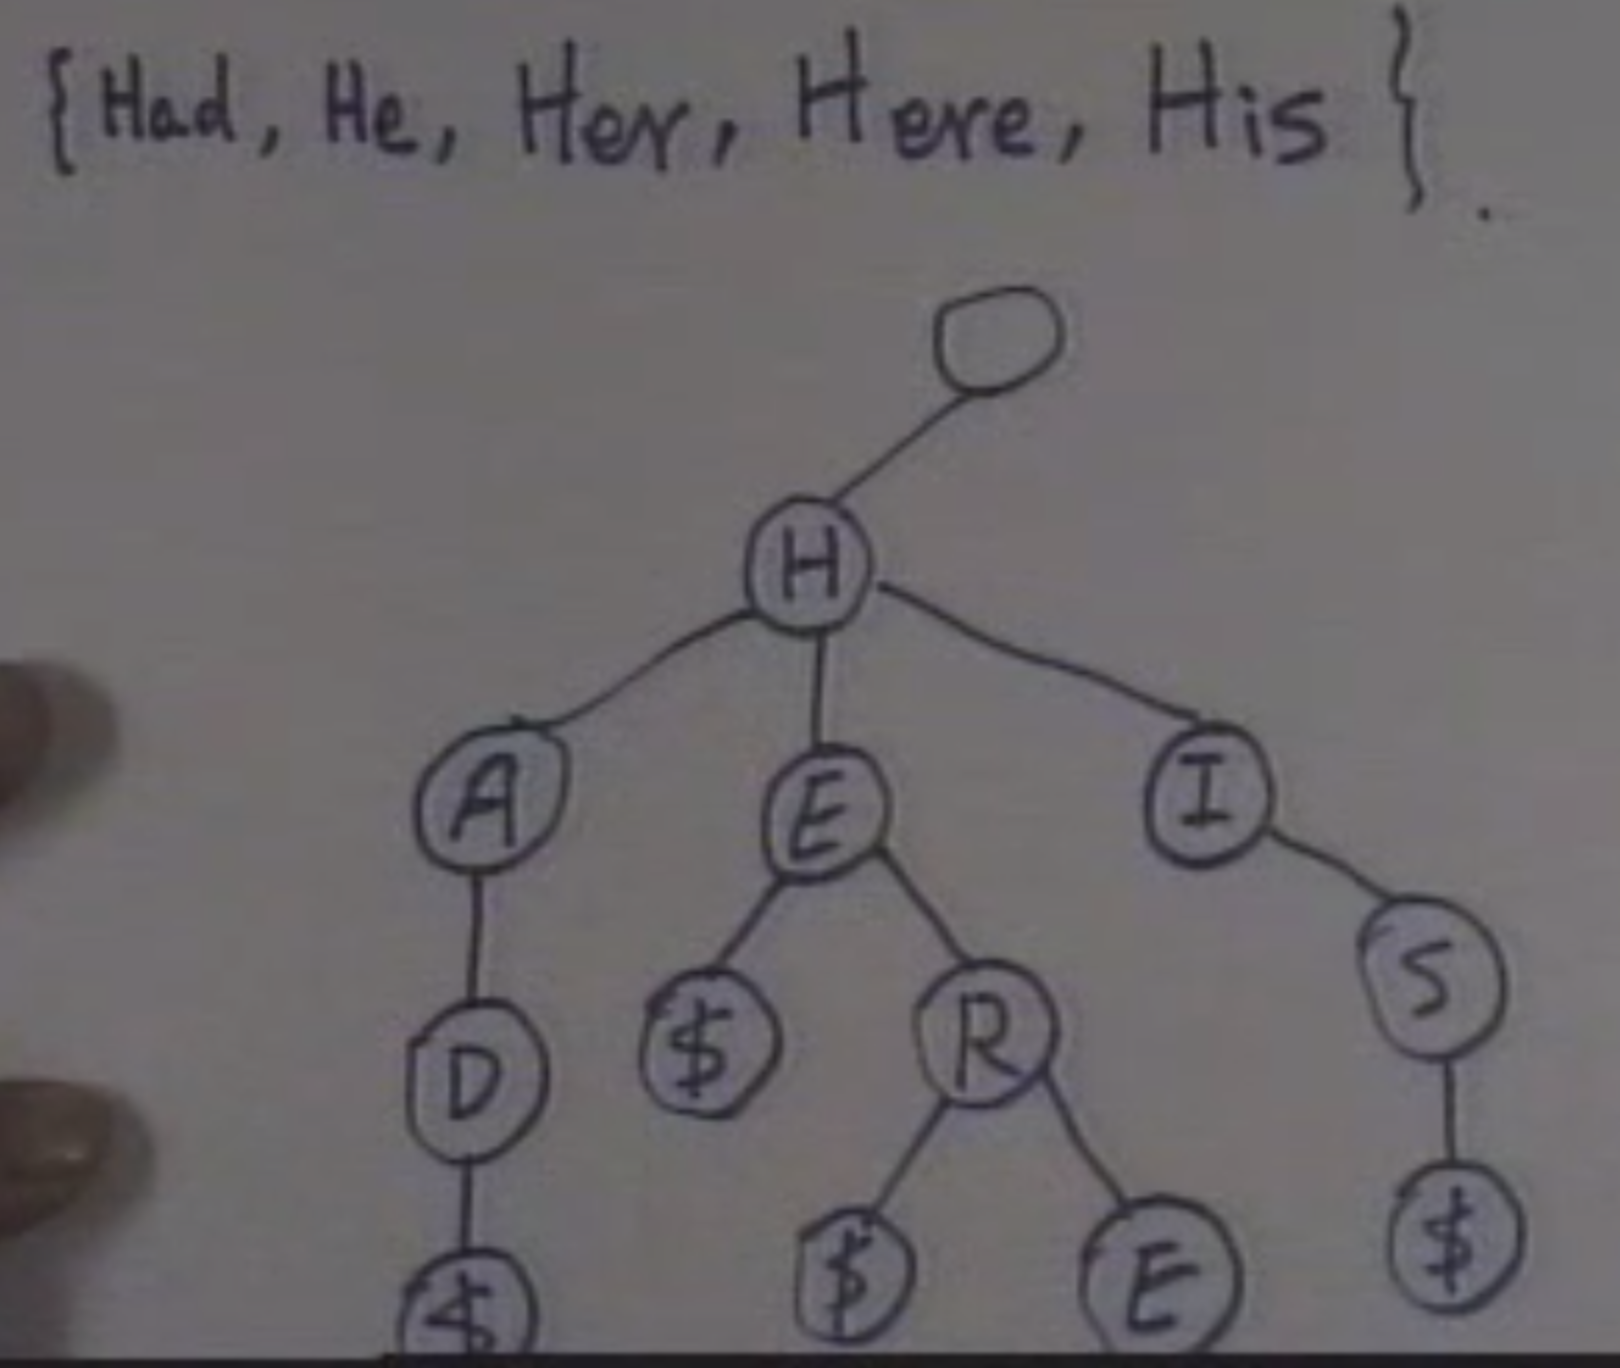 {Had, He, Her, Here, His}.
H
A E I
S
D $ R
$ $ E $